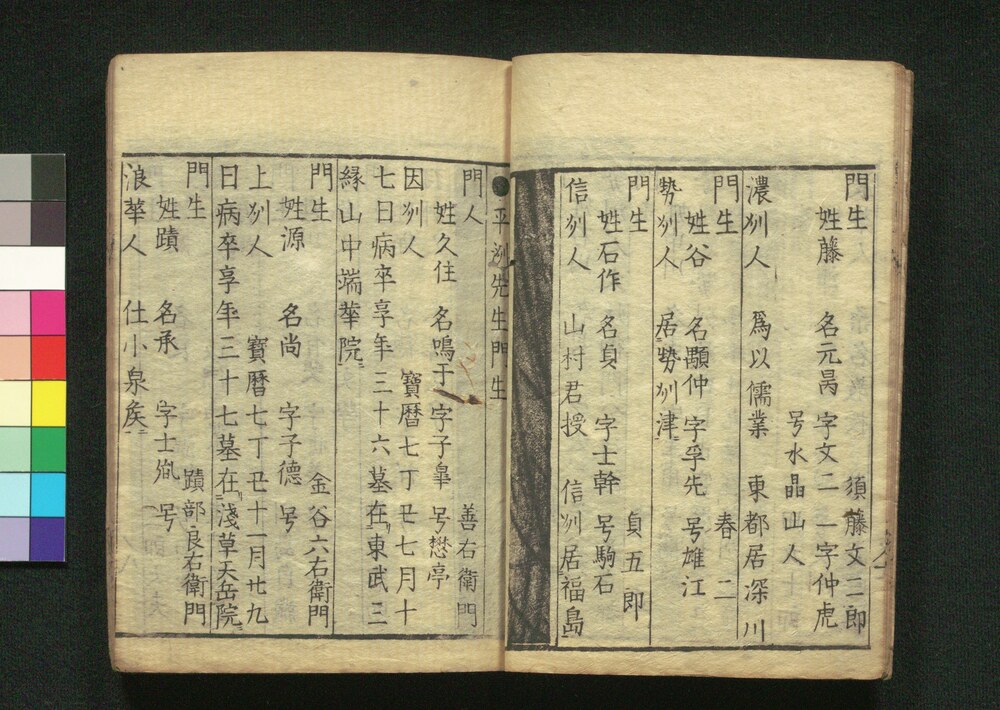 門生 須藤文二郎
姓藤 名元昺 字文二 一字仲虎
号水晶山人
濃州人 爲以儒業 東都居深川
門生 春二
姓谷 名顯仲 字孚先 号雄江
勢州人 居勢州津
門生 貞五郎
姓石作 名貞 字士幹 号駒石
信州人 山村君授 信州居福島
平洲先生門生
門人 善右衛門
姓久住 名鳴于 字子皐 号愁亭
因州人 寶暦七丁丑七月十
七日病卒享年三十六墓在東武三
縁山中端華院
門生 金谷六右衛門
姓源 名尚 字子德 号
上州人 寶暦七丁丑十一月廿九
日病卒享年三十七墓在淺草天岳院
門生 蹟部良右衛門
姓蹟 名承 字士 号
浪華人 仕小泉矦